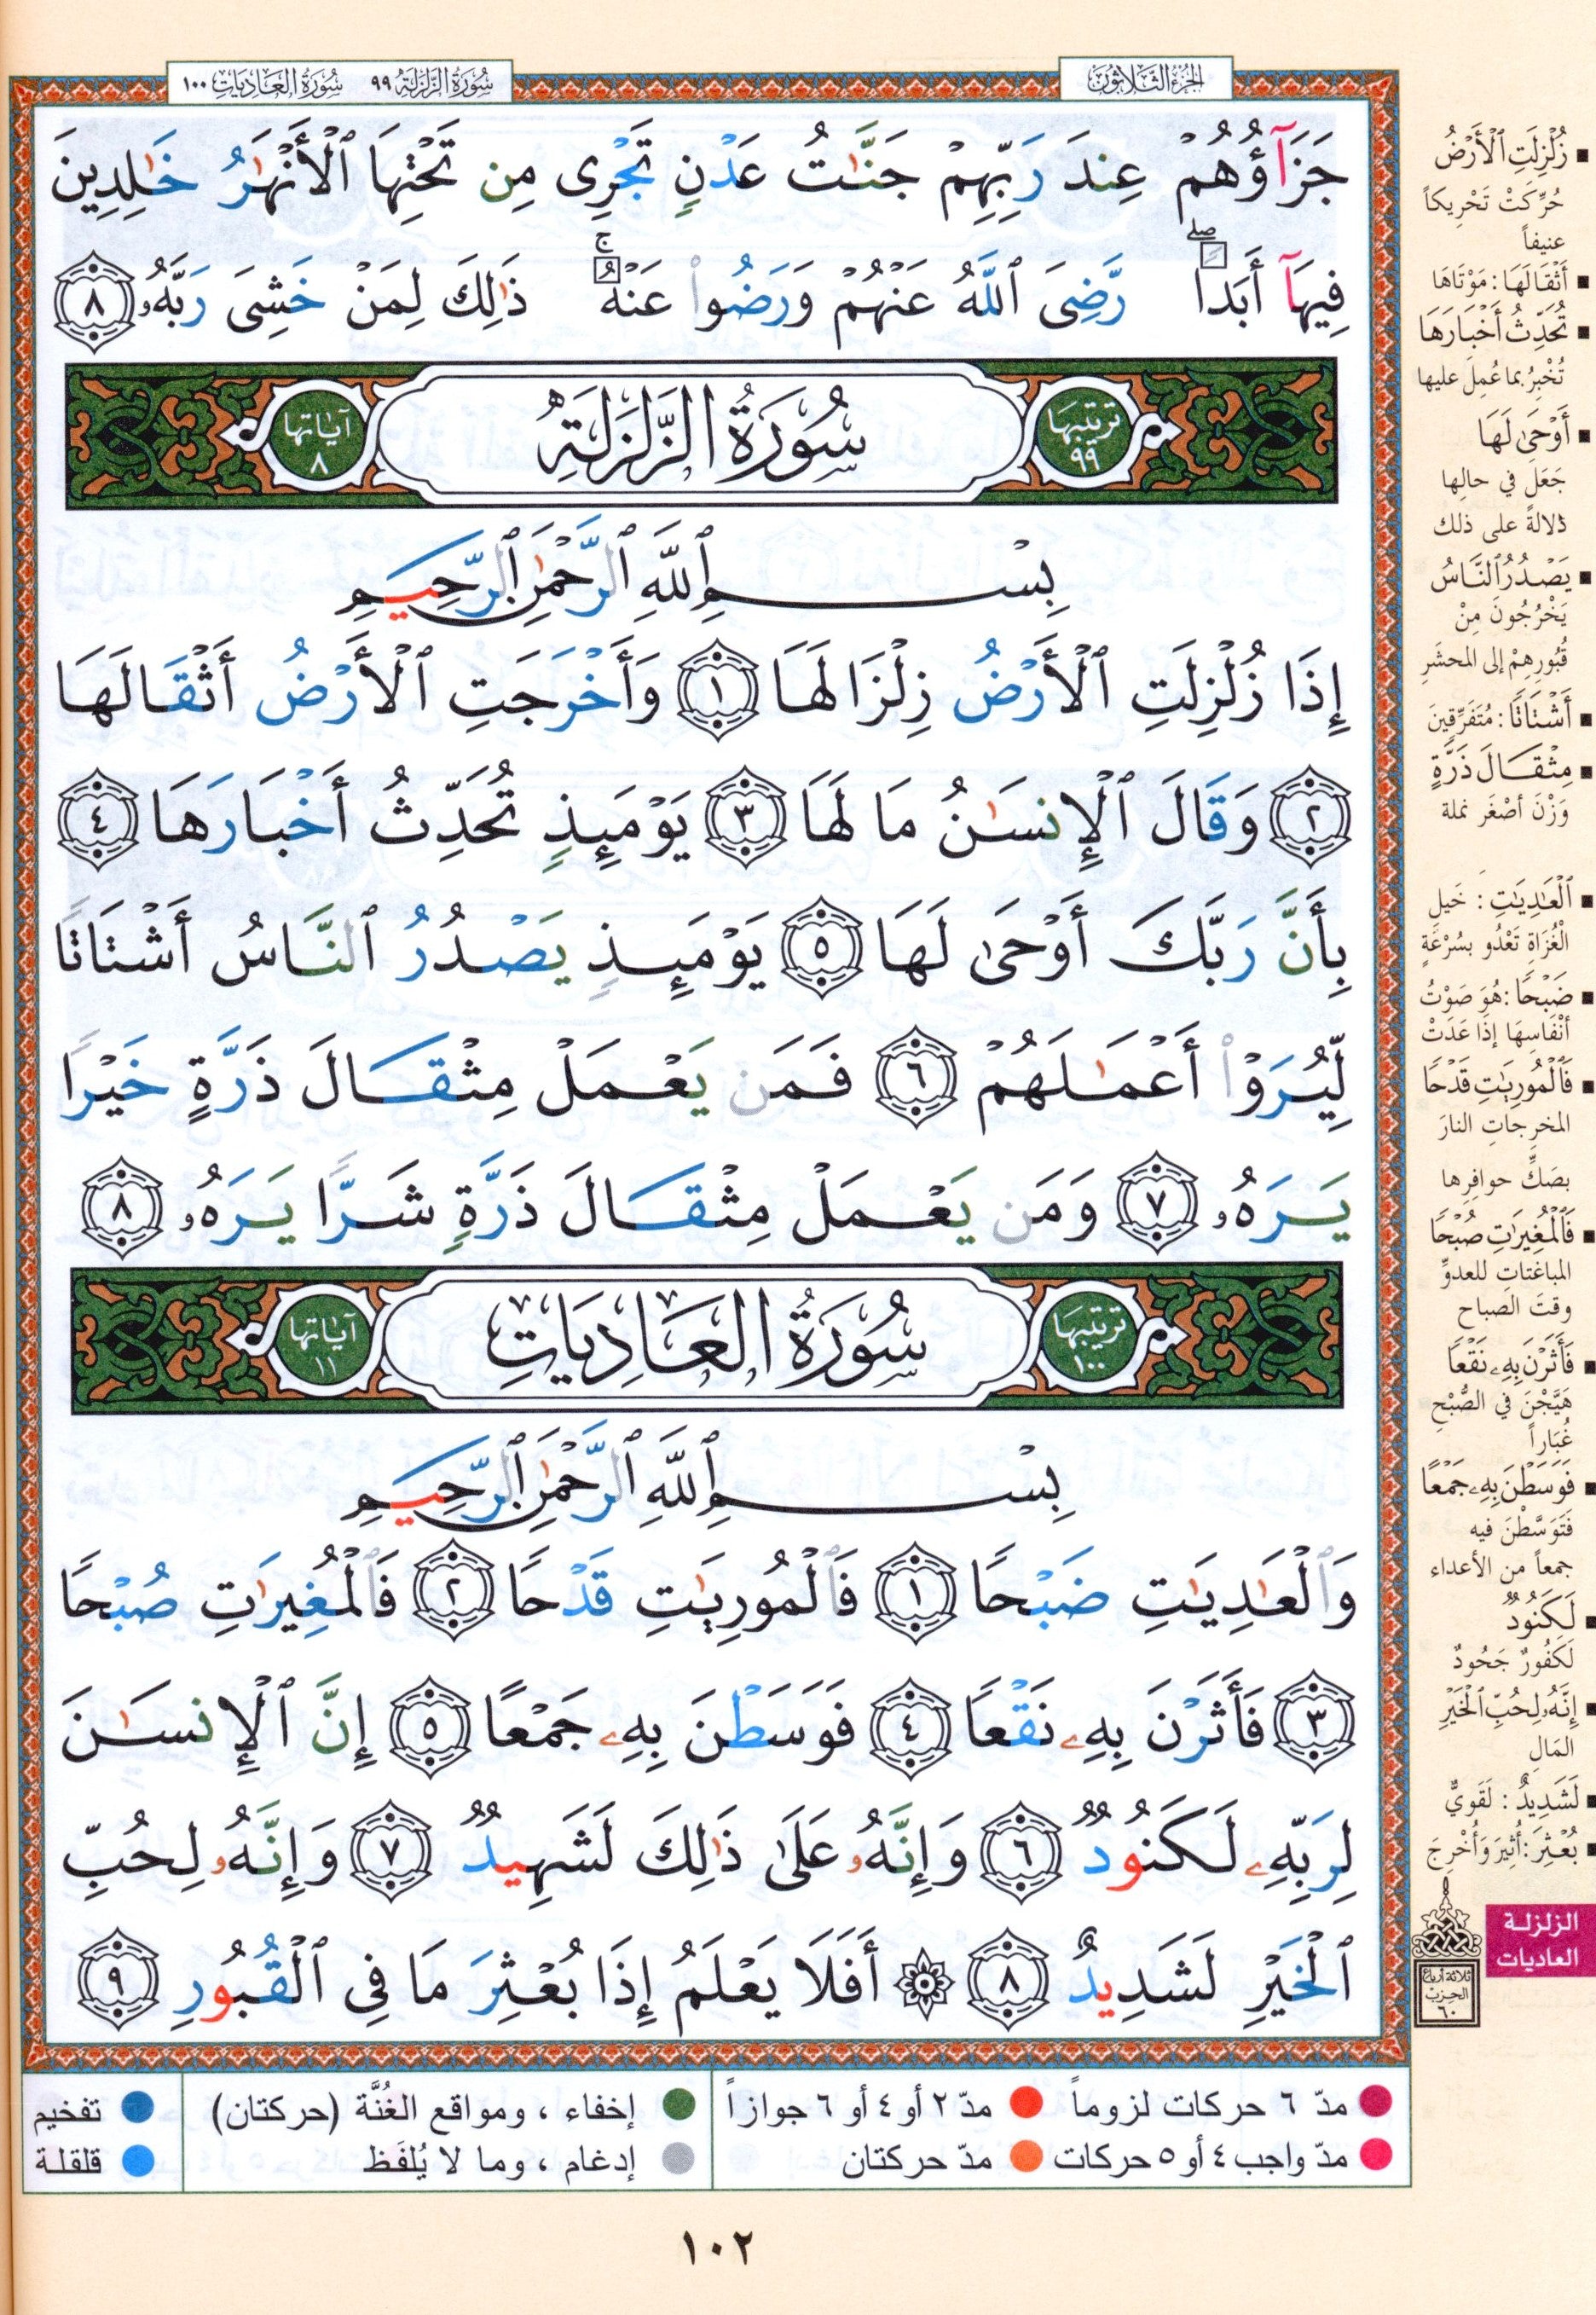 سُورَةُ الزَّلزَلة ٩٩ سُورَةُ العَاديَات ١٠٠
الجزء الثلاثون
جَزَآؤُهُمْ عِندَ رَبِّهِمْ جَنَّٰتُ عَدْنٍ تَجْرِى مِن تَحْتِهَا ٱلْأَنْهَٰرُ خَٰلِدِينَ
فِيهَآ أَبَدًا ۖ رَّضِىَ ٱللَّهُ عَنْهُمْ وَرَضُوا۟ عَنْهُ ۚ ذَٰلِكَ لِمَنْ خَشِىَ رَبَّهُۥ ٨
ترتيبها ٩٩ سُورَةُ الزَّلزَلة آياتها ٨
بِسْمِ ٱللَّهِ ٱلرَّحْمَٰنِ ٱلرَّحِيمِ
إِذَا زُلْزِلَتِ ٱلْأَرْضُ زِلْزَالَهَا ١ وَأَخْرَجَتِ ٱلْأَرْضُ أَثْقَالَهَا
٢ وَقَالَ ٱلْإِنسَٰنُ مَا لَهَا ٣ يَوْمَئِذٍ تُحَدِّثُ أَخْبَارَهَا ٤
بِأَنَّ رَبَّكَ أَوْحَىٰ لَهَا ٥ يَوْمَئِذٍ يَصْدُرُ ٱلنَّاسُ أَشْتَاتًا
لِّيُرَوْا۟ أَعْمَٰلَهُمْ ٦ فَمَن يَعْمَلْ مِثْقَالَ ذَرَّةٍ خَيْرًا
يَرَهُۥ ٧ وَمَن يَعْمَلْ مِثْقَالَ ذَرَّةٍ شَرًّا يَرَهُۥ ٨
ترتيبها ١٠٠ سُورَةُ العَاديَات آياتها ١١
بِسْمِ ٱللَّهِ ٱلرَّحْمَٰنِ ٱلرَّحِيمِ
وَٱلْعَٰدِيَٰتِ ضَبْحًا ١ فَٱلْمُورِيَٰتِ قَدْحًا ٢ فَٱلْمُغِيرَٰتِ صُبْحًا
٣ فَأَثَرْنَ بِهِۦ نَقْعًا ٤ فَوَسَطْنَ بِهِۦ جَمْعًا ٥ إِنَّ ٱلْإِنسَٰنَ
لِرَبِّهِۦ لَكَنُودٌ ٦ وَإِنَّهُۥ عَلَىٰ ذَٰلِكَ لَشَهِيدٌ ٧ وَإِنَّهُۥ لِحُبِّ
ٱلْخَيْرِ لَشَدِيدٌ ٨ ۞ أَفَلَا يَعْلَمُ إِذَا بُعْثِرَ مَا فِى ٱلْقُبُورِ ٩
زُلْزِلَتِ ٱلْأَرْضُ
حُرِّكَتْ تَحْرِيكاً
عنيفاً
أَثْقَالَهَا : مَوْتَاهَا
تُحَدِّثُ أَخْبَارَهَا
تُخْبِرُ بما عُمِلَ عليها
أَوْحَىٰ لَهَا
جَعَلَ في حالِها
دلالةً على ذلك
يَصْدُرُ ٱلنَّاسُ
يَخْرُجُونَ مِنْ
قُبُورِهِمْ إلى المحشَرِ
أَشْتَاتًا : مُتَفَرِّقِينَ
مِثْقَالَ ذَرَّةٍ
وَزْنَ أصْغَر نملة
ٱلْعَٰدِيَٰتِ : خَيلِ
الغُزَاةِ تَعْدُو بسُرْعَةٍ
ضَبْحًا : هُوَ صَوْتُ
أنْفَاسِهَا إذا عَدَتْ
فَٱلْمُورِيَٰتِ قَدْحًا
المخرِجاتِ النارَ
بصَكِّ حوافِرِها
فَٱلْمُغِيرَٰتِ صُبْحًا
المباغتاتِ للعدوِّ
وقتَ الصباح
فَأَثَرْنَ بِهِۦ نَقْعًا
هَيَّجْنَ في الصُّبْحِ
غُبَاراً
فَوَسَطْنَ بِهِۦ جَمْعًا
فَتَوَسَّطْنَ فيه
جمعاً من الأعداء
لَكَنُودٌ
لَكَفُورٌ جَحُودٌ
إِنَّهُۥ لِحُبِّ ٱلْخَيْرِ
المَالِ
لَشَدِيدٌ : لَقَوِيٌّ
بُعْثِرَ : أُثِيرَ وَأُخْرِجَ
الزلزلة
العاديات
ثلاثة أرباع
الحزب
٦٠
مدّ ٦ حركات لزوماً مدّ ٢ أو ٤ أو ٦ جوازاً إخفاء ، ومواقع الغُنَّة (حركتان) تفخيم
مدّ واجب ٤ أو ٥ حركات مدّ حركتان إدغام ، وما لا يُلفَظ قلقلة
١٠٢